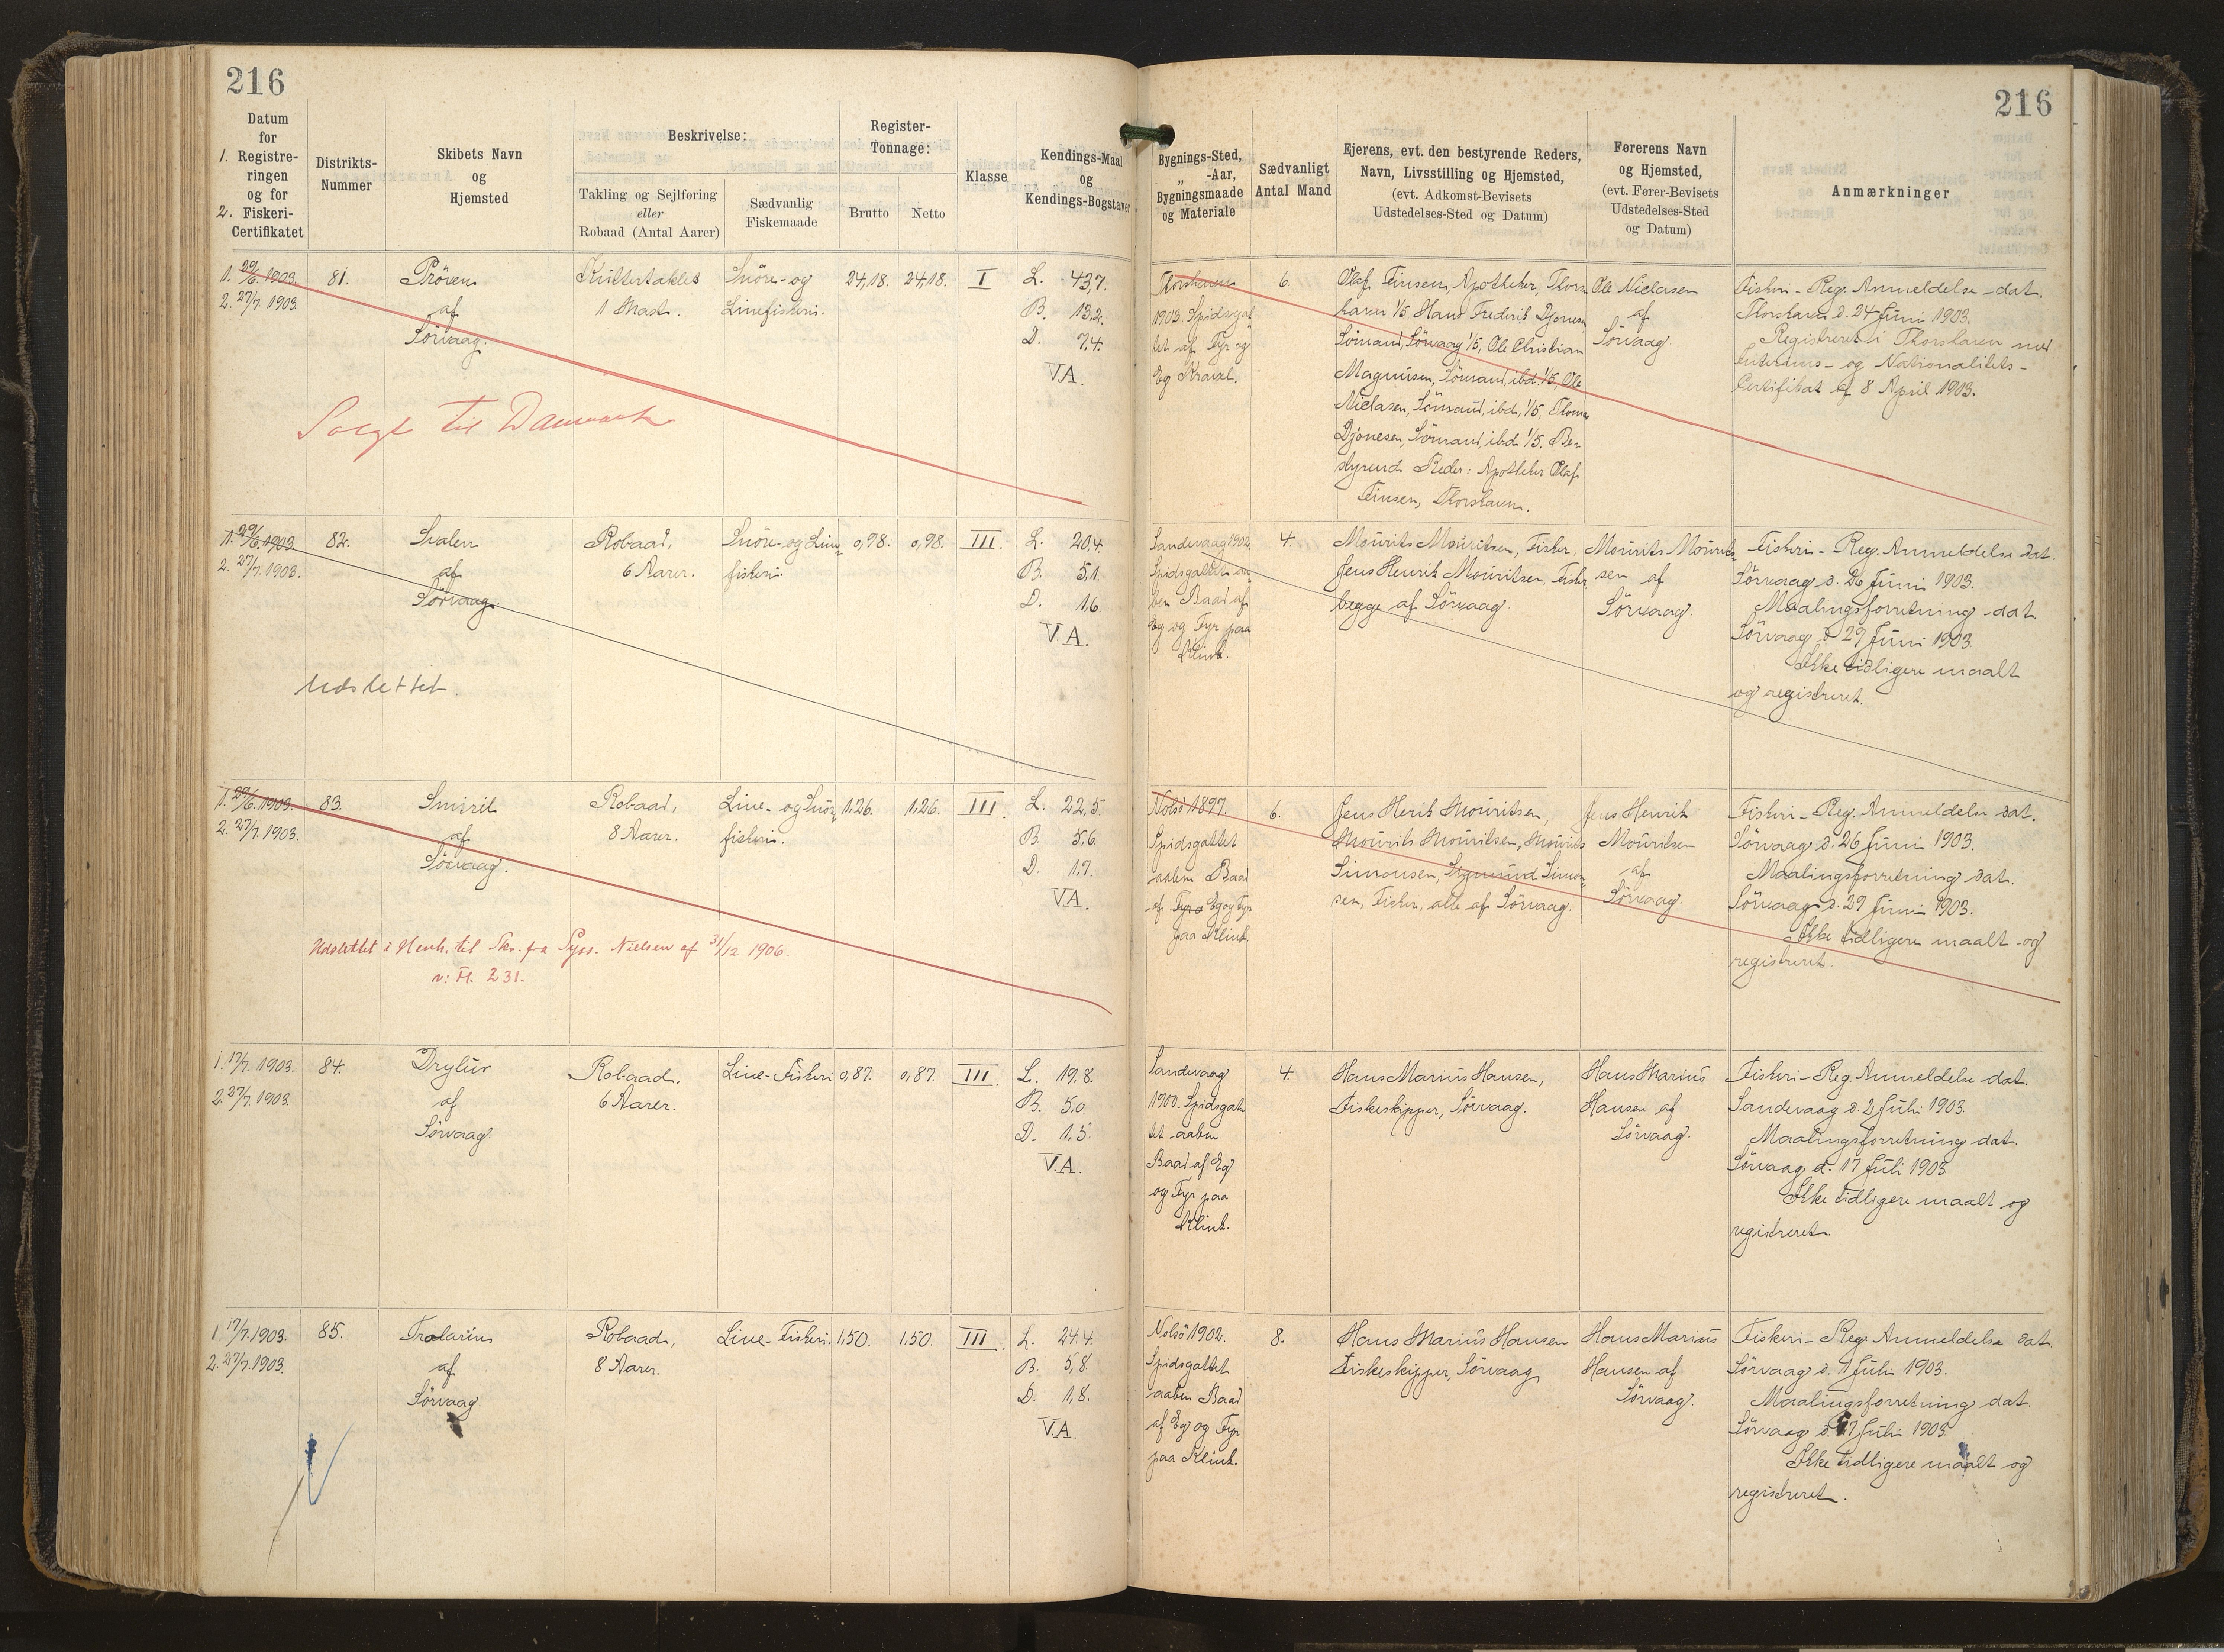 216
216
Datum
for
1. Registre-
ringen
og for
2. Fiskeri-
Certifikatet
Distrikts-
Nummer
Skibets Navn
og
Hjemsted
Beskrivelse:
Takling og Sejlføring
eller
Robaad (Antal Aarer)
Sædvanlig
Fiskemaade
Register-
Tonnage:
Brutto
Netto
Klasse
Kendings-Maal
og
Kendings-Bogstaver
Bygnings-Sted,
„ -Aar,
Bygningsmaade
og Materiale
Sædvanligt
Antal Mand
Ejerens, evt. den bestyrende Reders,
Navn, Livsstilling og Hjemsted,
(evt. Adkomst-Bevisets
Udstedelses-Sted og Datum)
Førerens Navn
og Hjemsted,
(evt. Fører-Bevisets
Udstedelses-Sted
og Datum)
Anmærkninger
1. 29/6. 1903.
2. 27/7. 1903
81.
Pröven
af
Sörvaag.
Kuttertaklet
1 Mast.
Snöre- og
Linefiskeri.
24,18.
24,18.
I
L. 43,7.
B. 13,2.
D. 7,4.
V.A.
Thorshavn
1903. Spidsgat
tet af Fyr og
Eg Kravel.
6.
Olaf Finsen, Apotheker, Thors
havn 1/5 Hans Frederik Djonesen
Sömand, Sörvaag 1/5, Ole Christian
Magnusen, Sömand, ibd. 1/5, Ole
Niclasen, Sömand, ibd, 1/5, Thomas
Djonesen, Sömand, ibd 1/5. Be-
styrende Reder: Apotheker Olaf
Finsen, Thorshavn.
Ole Niclasen
af
Sörvaag.
Fiskeri-Reg. Anmeldelse dat.
Thorshavn d. 24 Juni 1903.
Registreret i Thorshavn med
Interims- og Nationalitets-
Certifikat af 8 April 1903.
Solgt til Danmark
1. 29/6. 1903.
2. 27/7. 1903.
82.
Svalen
af
Sörvaag
Robaad,
6 Aarer.
Snöre- og Line
fiskeri.
0,98.
0,98.
III.
L. 20,4.
B. 5,1.
D. 1,6.
V.A.
Sandevaag 1902.
Spidsgattet aa-
ben Baad af
Eg og Fyr paa
Klink.
4.
Mourits Mouritsen, Fisker,
Jens Henrik Mouritsen, Fisker
begge af Sörvaag.
Mourits Mourit-
sen af
Sörvaag.
Fiskeri-Reg. Anmeldelse dat.
Sörvaag d. 26 Juni 1903.
Maalingsforretning dat.
Sörvaag d. 29 Juni 1903.
Ikke tidligere maalt
og registreret.
Udslettet.
1. 29/6. 1903.
2. 27/7. 1903.
83.
Smiril
af
Sörvaag.
Robaad,
8 Aarer.
Line- og Snöre
fiskeri.
1,26.
1,26.
III.
L. 22,5.
B. 5,6.
D. 1,7.
V.A.
Nolsö 1897.
Spidsgattet
aaben Baad
af Fyr o Eg og Fyr
paa Klink.
6.
Jens Henrik Mouritsen,
Mourits Mouritsen, Mourits
Simonsen, Sigmund Simon-
sen, Fisker, alle af Sörvaag.
Jens Henrik
Mouritsen
af
Sörvaag.
Fiskeri-Reg. Anmeldelse dat.
Sörvaag d. 26 Juni 1903.
Maalingsforretning dat.
Sörvaag d. 29 Juni 1903.
Ikke tidligere maalt og
registreret.
Udslettet i Henh. til Skr. fra Syss. Nielsen af 31/12 1906.
v: Fl. 231.
1. 17/7. 1903.
2. 27/7. 1903.
84.
Drylur
af
Sörvaag.
Robaad.
6 Aarer.
Line-Fiskeri
0,87.
0,87.
III.
L. 19,8.
B. 5,0.
D. 1,5.
V.A.
Sandevaag
1900. Spidsgat
tet aaben
Baad af Eg
og Fyr paa
Klink.
4.
Hans Marius Hansen,
Fiskeskipper, Sörvaag.
Hans Marius
Hansen af
Sörvaag.
Fiskeri-Reg. Anmeldelse dat.
Sandevaag d. 2 Juli 1903.
Maalingsforretning dat.
Sörvaag d. 17 Juli 1903
Ikke tidligere maalt og
registreret
1. 17/7. 1903.
2. 27/7. 1903.
85.
Tralarin
af
Sörvaag.
Robaad,
8 Aarer.
Line-Fiskeri.
1,50.
1,50.
III.
L. 24,4
B. 5,8.
D. 1,8.
V.A.
Nolsö 1902.
Spidsgattet
aaben Baad
af Eg og Fyr
paa Klink.
8.
Hans Marius Hansen
Fiskeskipper, Sörvaag
Hans Marius
Hansen af
Sörvaag.
Fiskeri-Reg. Anmeldelse dat
Sörvaag d. 1 Juli 1903.
Maalingsforretning dat.
Sörvaag d. 17 Juli 1903
Ikke tidligere maalt og
registreret.